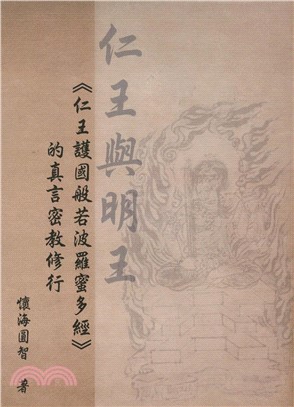 仁王與明王
《仁王護國般若波羅蜜多經》
的真言密教修行
懷海圓智 著